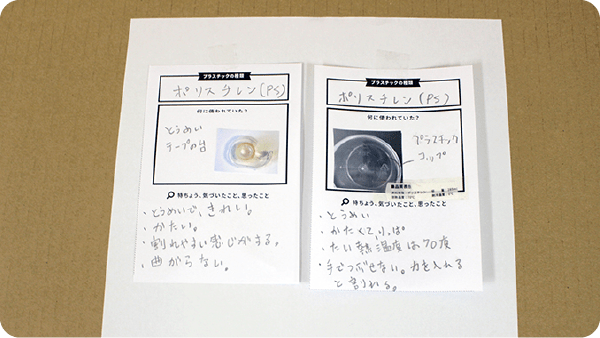 プラスチックの種類
ポリスチレン(PS)
何に使われていた?
とうめい
テープの台
特ちょう、気づいたこと、思ったこと
・とうめいで、きれい。
・かたい。
・割れやすい感じがする。
・曲がらない。
プラスチックの種類
ポリスチレン(PS)
何に使われていた?
プラスチック
コップ
特ちょう、気づいたこと、思ったこと
・とうめい
・かたくてりっぱ
・たい熱温度は70度
・手でつぶせない。力を入れる
と割れる。